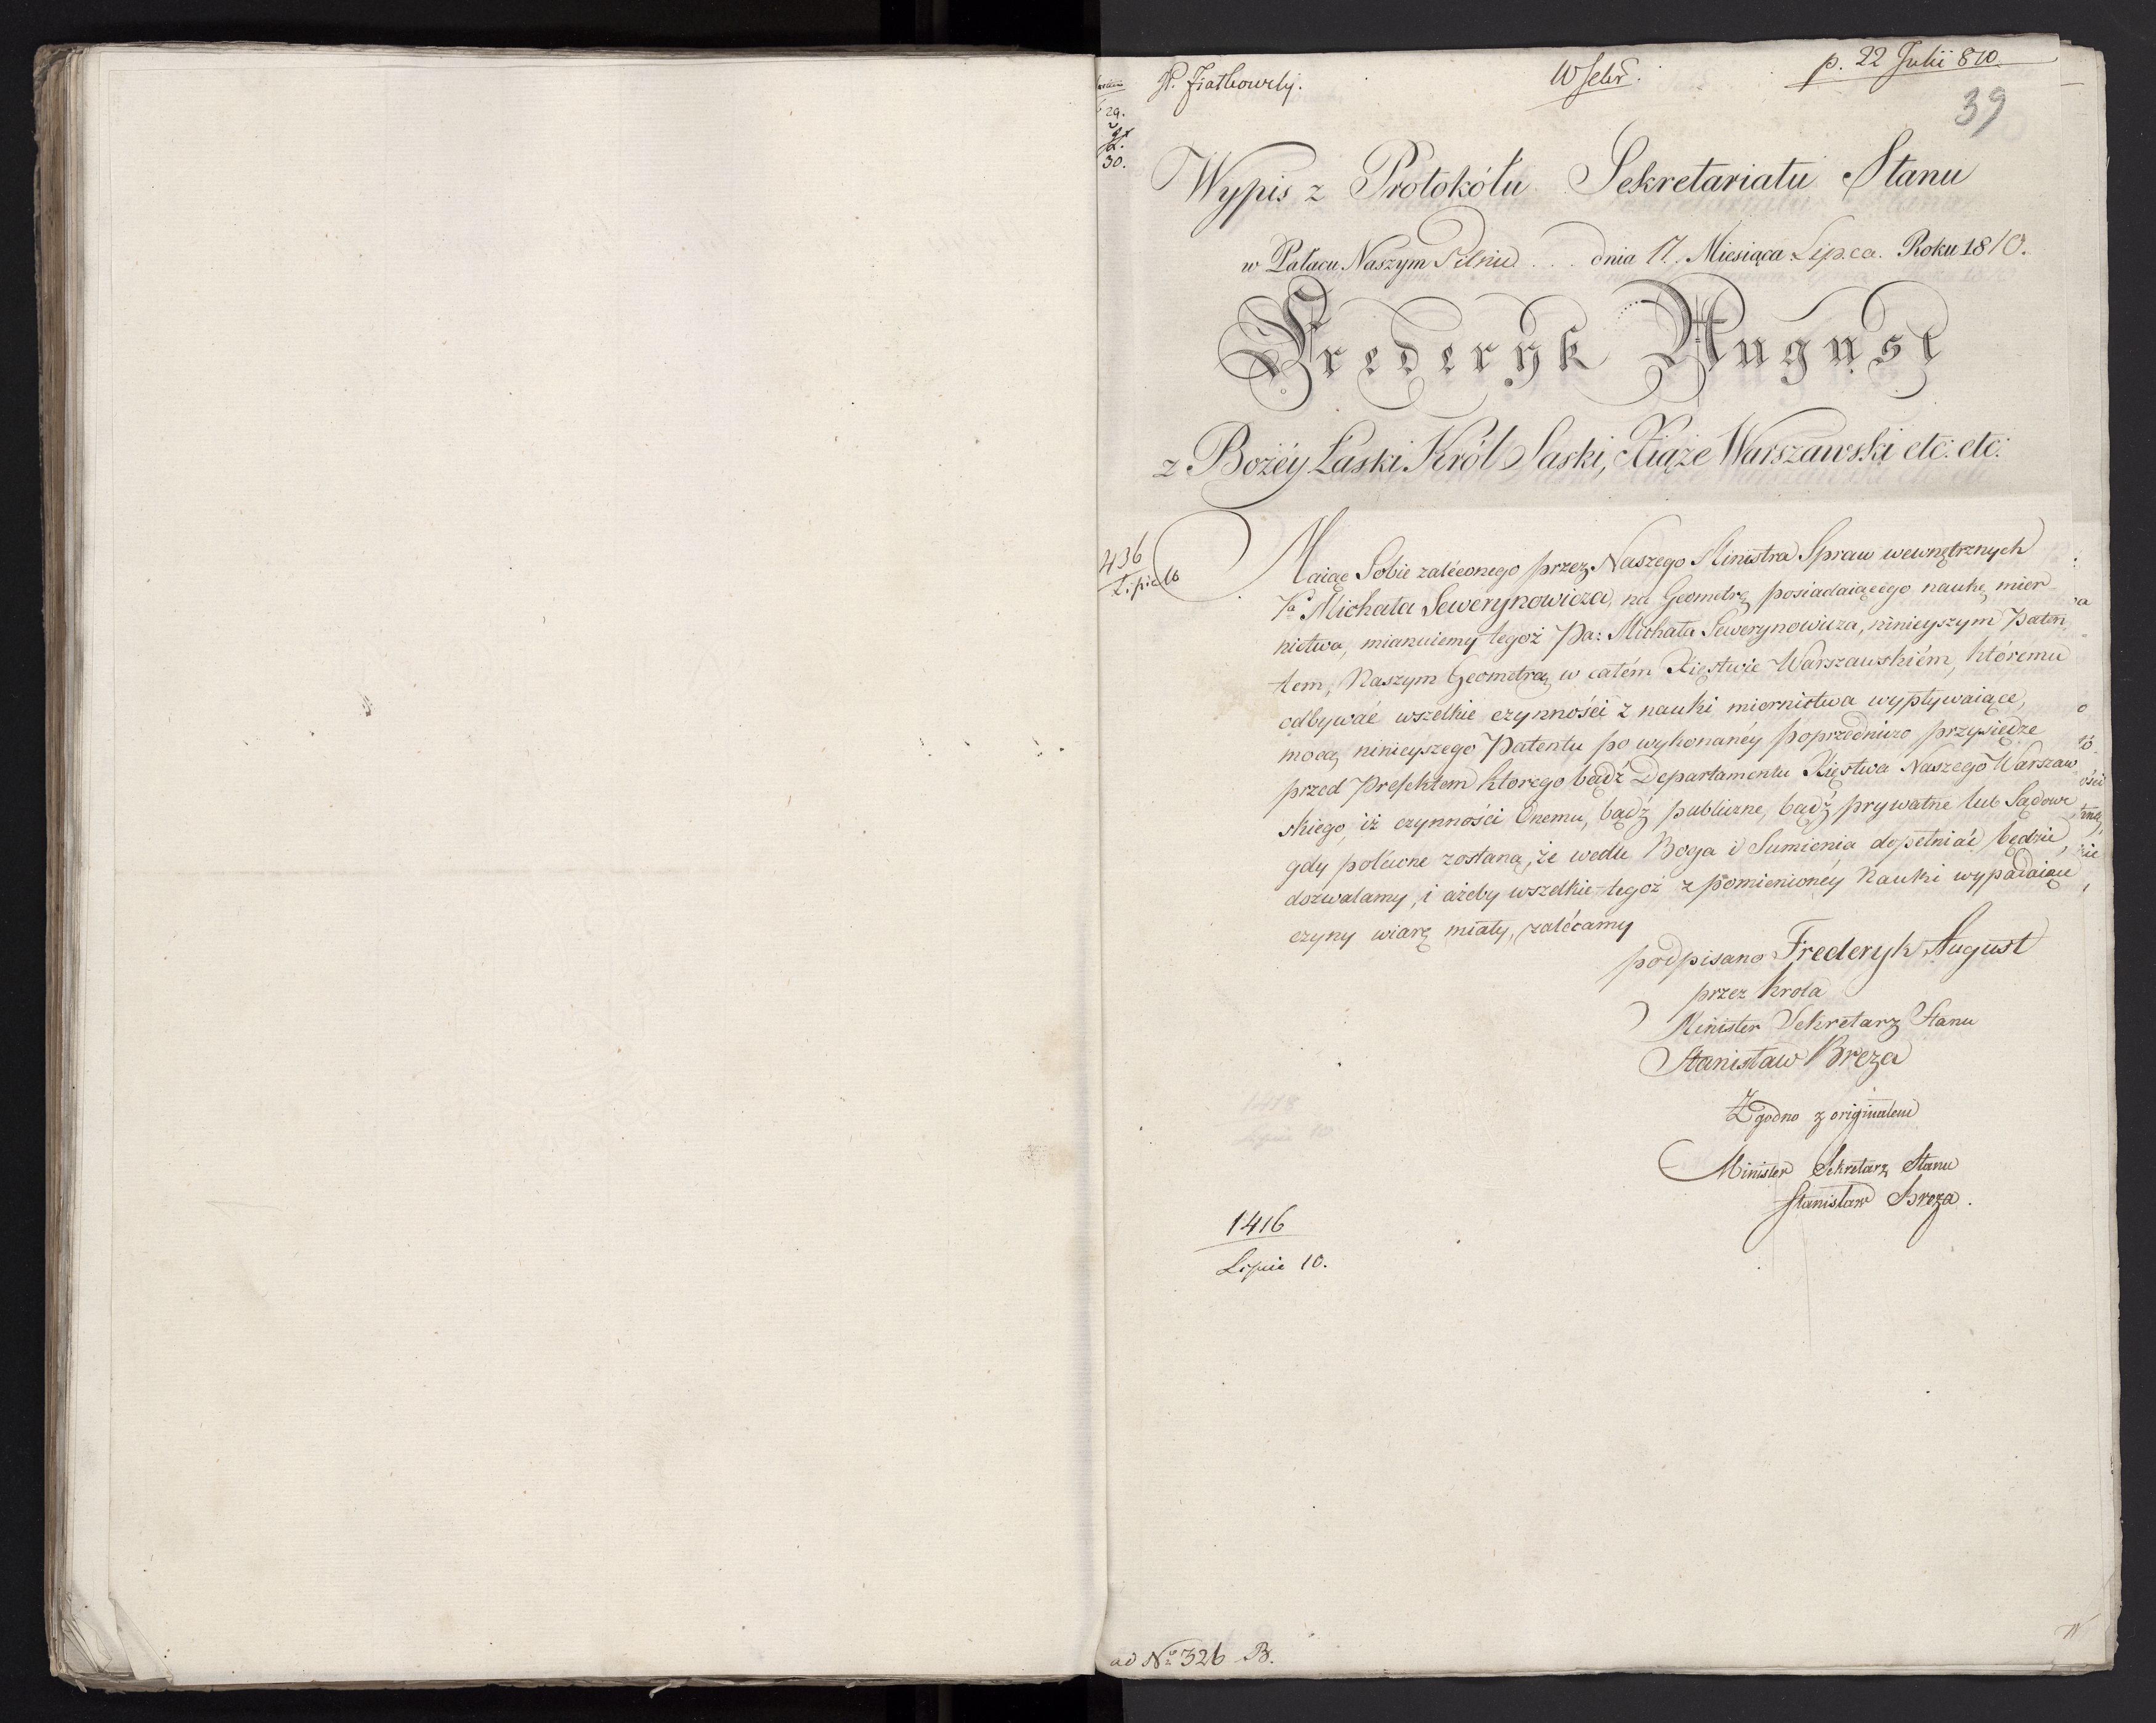 p. 22 Julii 810.
39
Wypis z Protokółu Sekretariatu Stanu
w Pałacu Naszym Pilnic dnia 17. Miesiąca Lipca. Roku 1810.
Frederyk August
z Bożéy Łaski Król Saski, Xiąże Warszawski etc: etc:
436
Lipie 16
Maiąc Sobie zaléconego przez Naszego Ministra Spraw wewnętrznych
Pa Michała Sewerynowicza, na Geometrę posiadaiącego naukę mier
nictwa, mianuiemy tegoż Pa: Michała Sewerynowicza, ninieyszym Paten
tem, Naszym Geometrą w całém Xięstwie Warszawskiém, któremu
odbywać wszelkie czynności z nauki miernictwa wypływaiące,
mocą ninieyszego Patentu po wykonanéy poprzedniczo przysiędze
przed Prefektem ktorego bądź Departamentu Xięstwa Naszego Warszaw
skiego, iż czynności Onemu, bądź publiczne, bądź prywatne lub Sądowe
gdy polécone zostaną, że wedle Boga i Sumienia dopełniać będzie,
dozwalamy, i ażeby wszelkie tegoż z pomienionéy Nauki wypadaiące
czyny wiarę miały, zalécamy
podpisano Frederyk August
przez Krola
Minister Sekretarz Stanu
Stanisław Breza
Zgodno z originalem
Minister Sekretarz Stanu
Stanisław Breza.
1416
Lipie 10.
ad No 326 B.